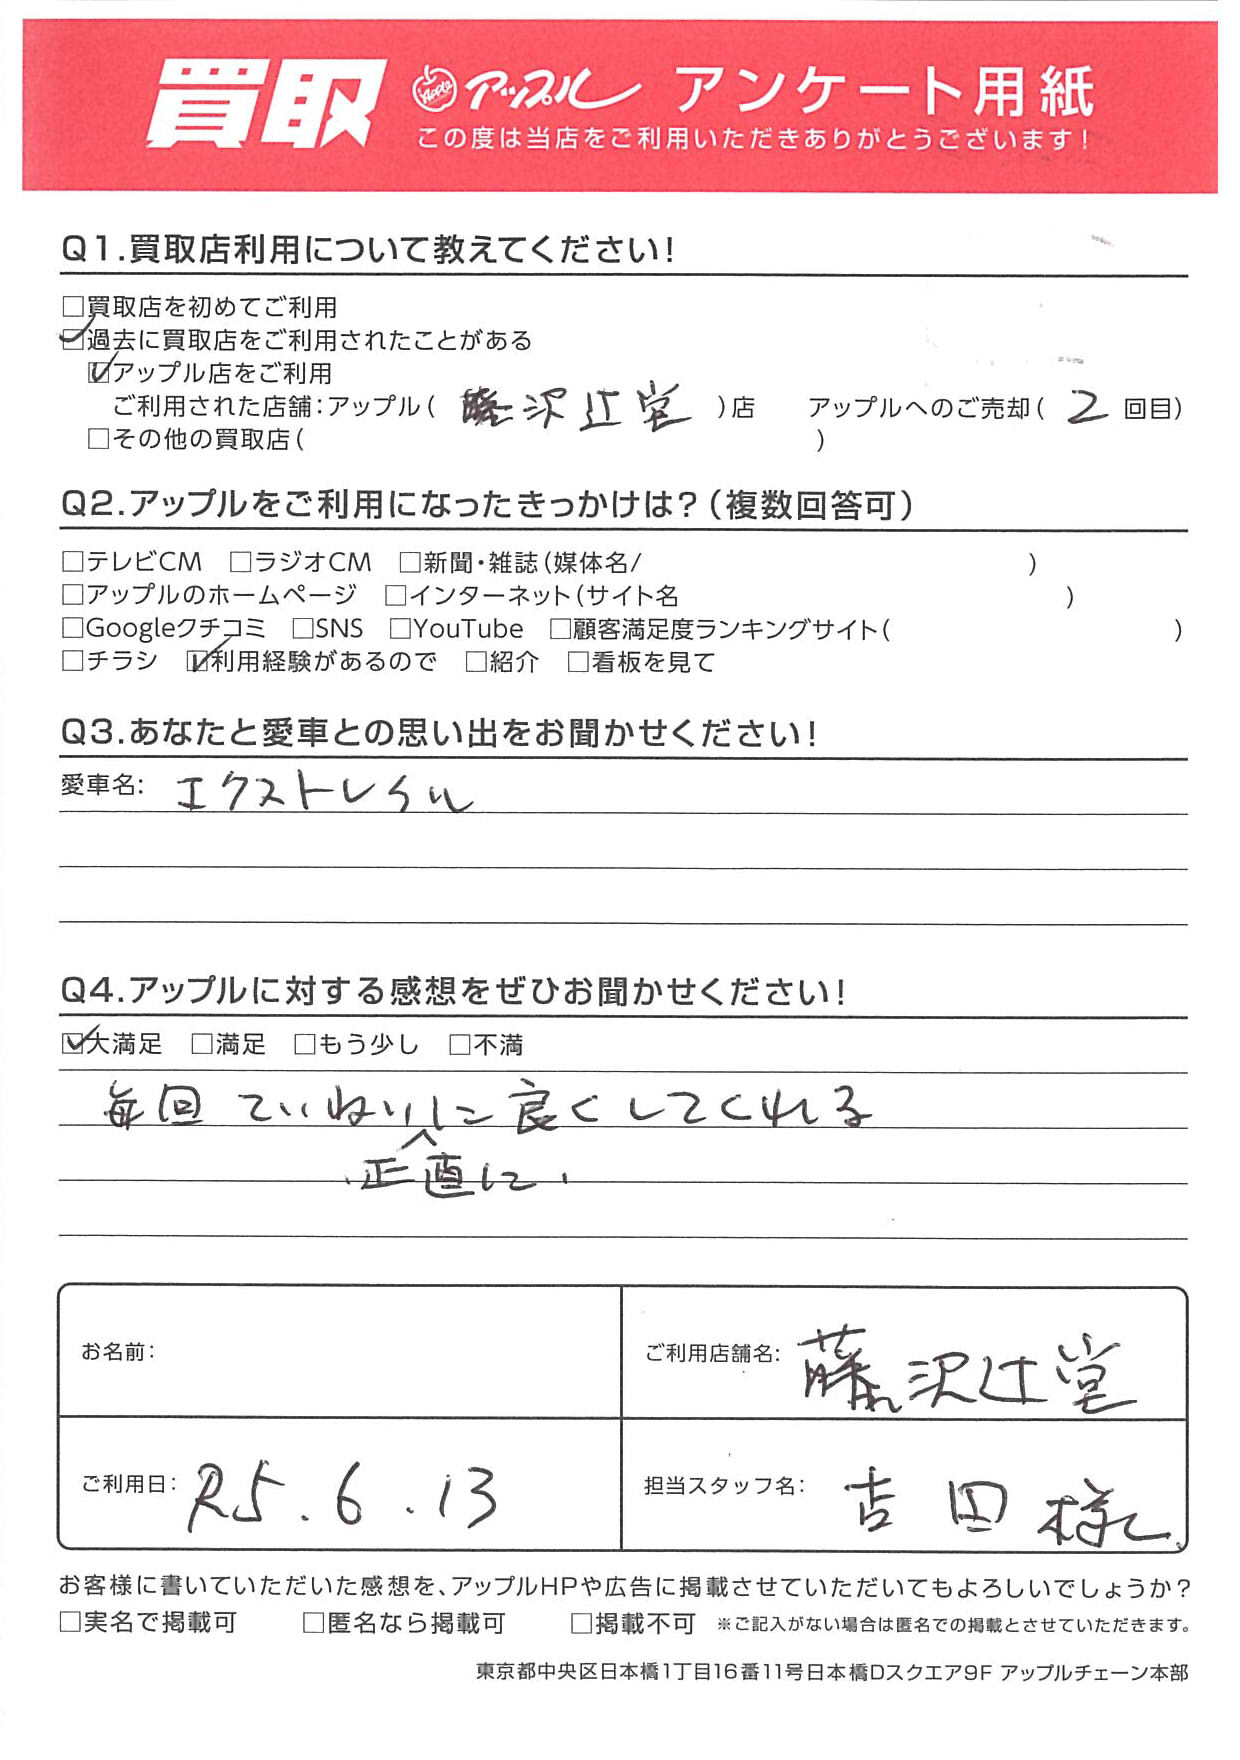 買取 Apple アップル アンケート用紙
この度は当店をご利用いただきありがとうございます!
Q1.買取店利用について教えてください!
□買取店を初めてご利用
☑過去に買取店をご利用されたことがある
☑アップル店をご利用
ご利用された店舗:アップル( 藤沢辻堂 )店 アップルへのご売却( 2 回目)
□その他の買取店( )
Q2.アップルをご利用になったきっかけは?(複数回答可)
□テレビCM □ラジオCM □新聞・雑誌(媒体名/ )
□アップルのホームページ □インターネット(サイト名 )
□Googleクチコミ □SNS □YouTube □顧客満足度ランキングサイト( )
□チラシ ☑利用経験があるので □紹介 □看板を見て
Q3.あなたと愛車との思い出をお聞かせください!
愛車名: エクストレイル
Q4.アップルに対する感想をぜひお聞かせください!
☑大満足 □満足 □もう少し □不満
毎回 ていねいに良くしてくれる
正直に
お名前:
ご利用店舗名: 藤沢辻堂
ご利用日: R5.6.13
担当スタッフ名: 吉田様
お客様に書いていただいた感想を、アップルHPや広告に掲載させていただいてもよろしいでしょうか?
□実名で掲載可 □匿名なら掲載可 □掲載不可 ※ご記入がない場合は匿名での掲載とさせていただきます。
東京都中央区日本橋1丁目16番11号日本橋Dスクエア9F アップルチェーン本部